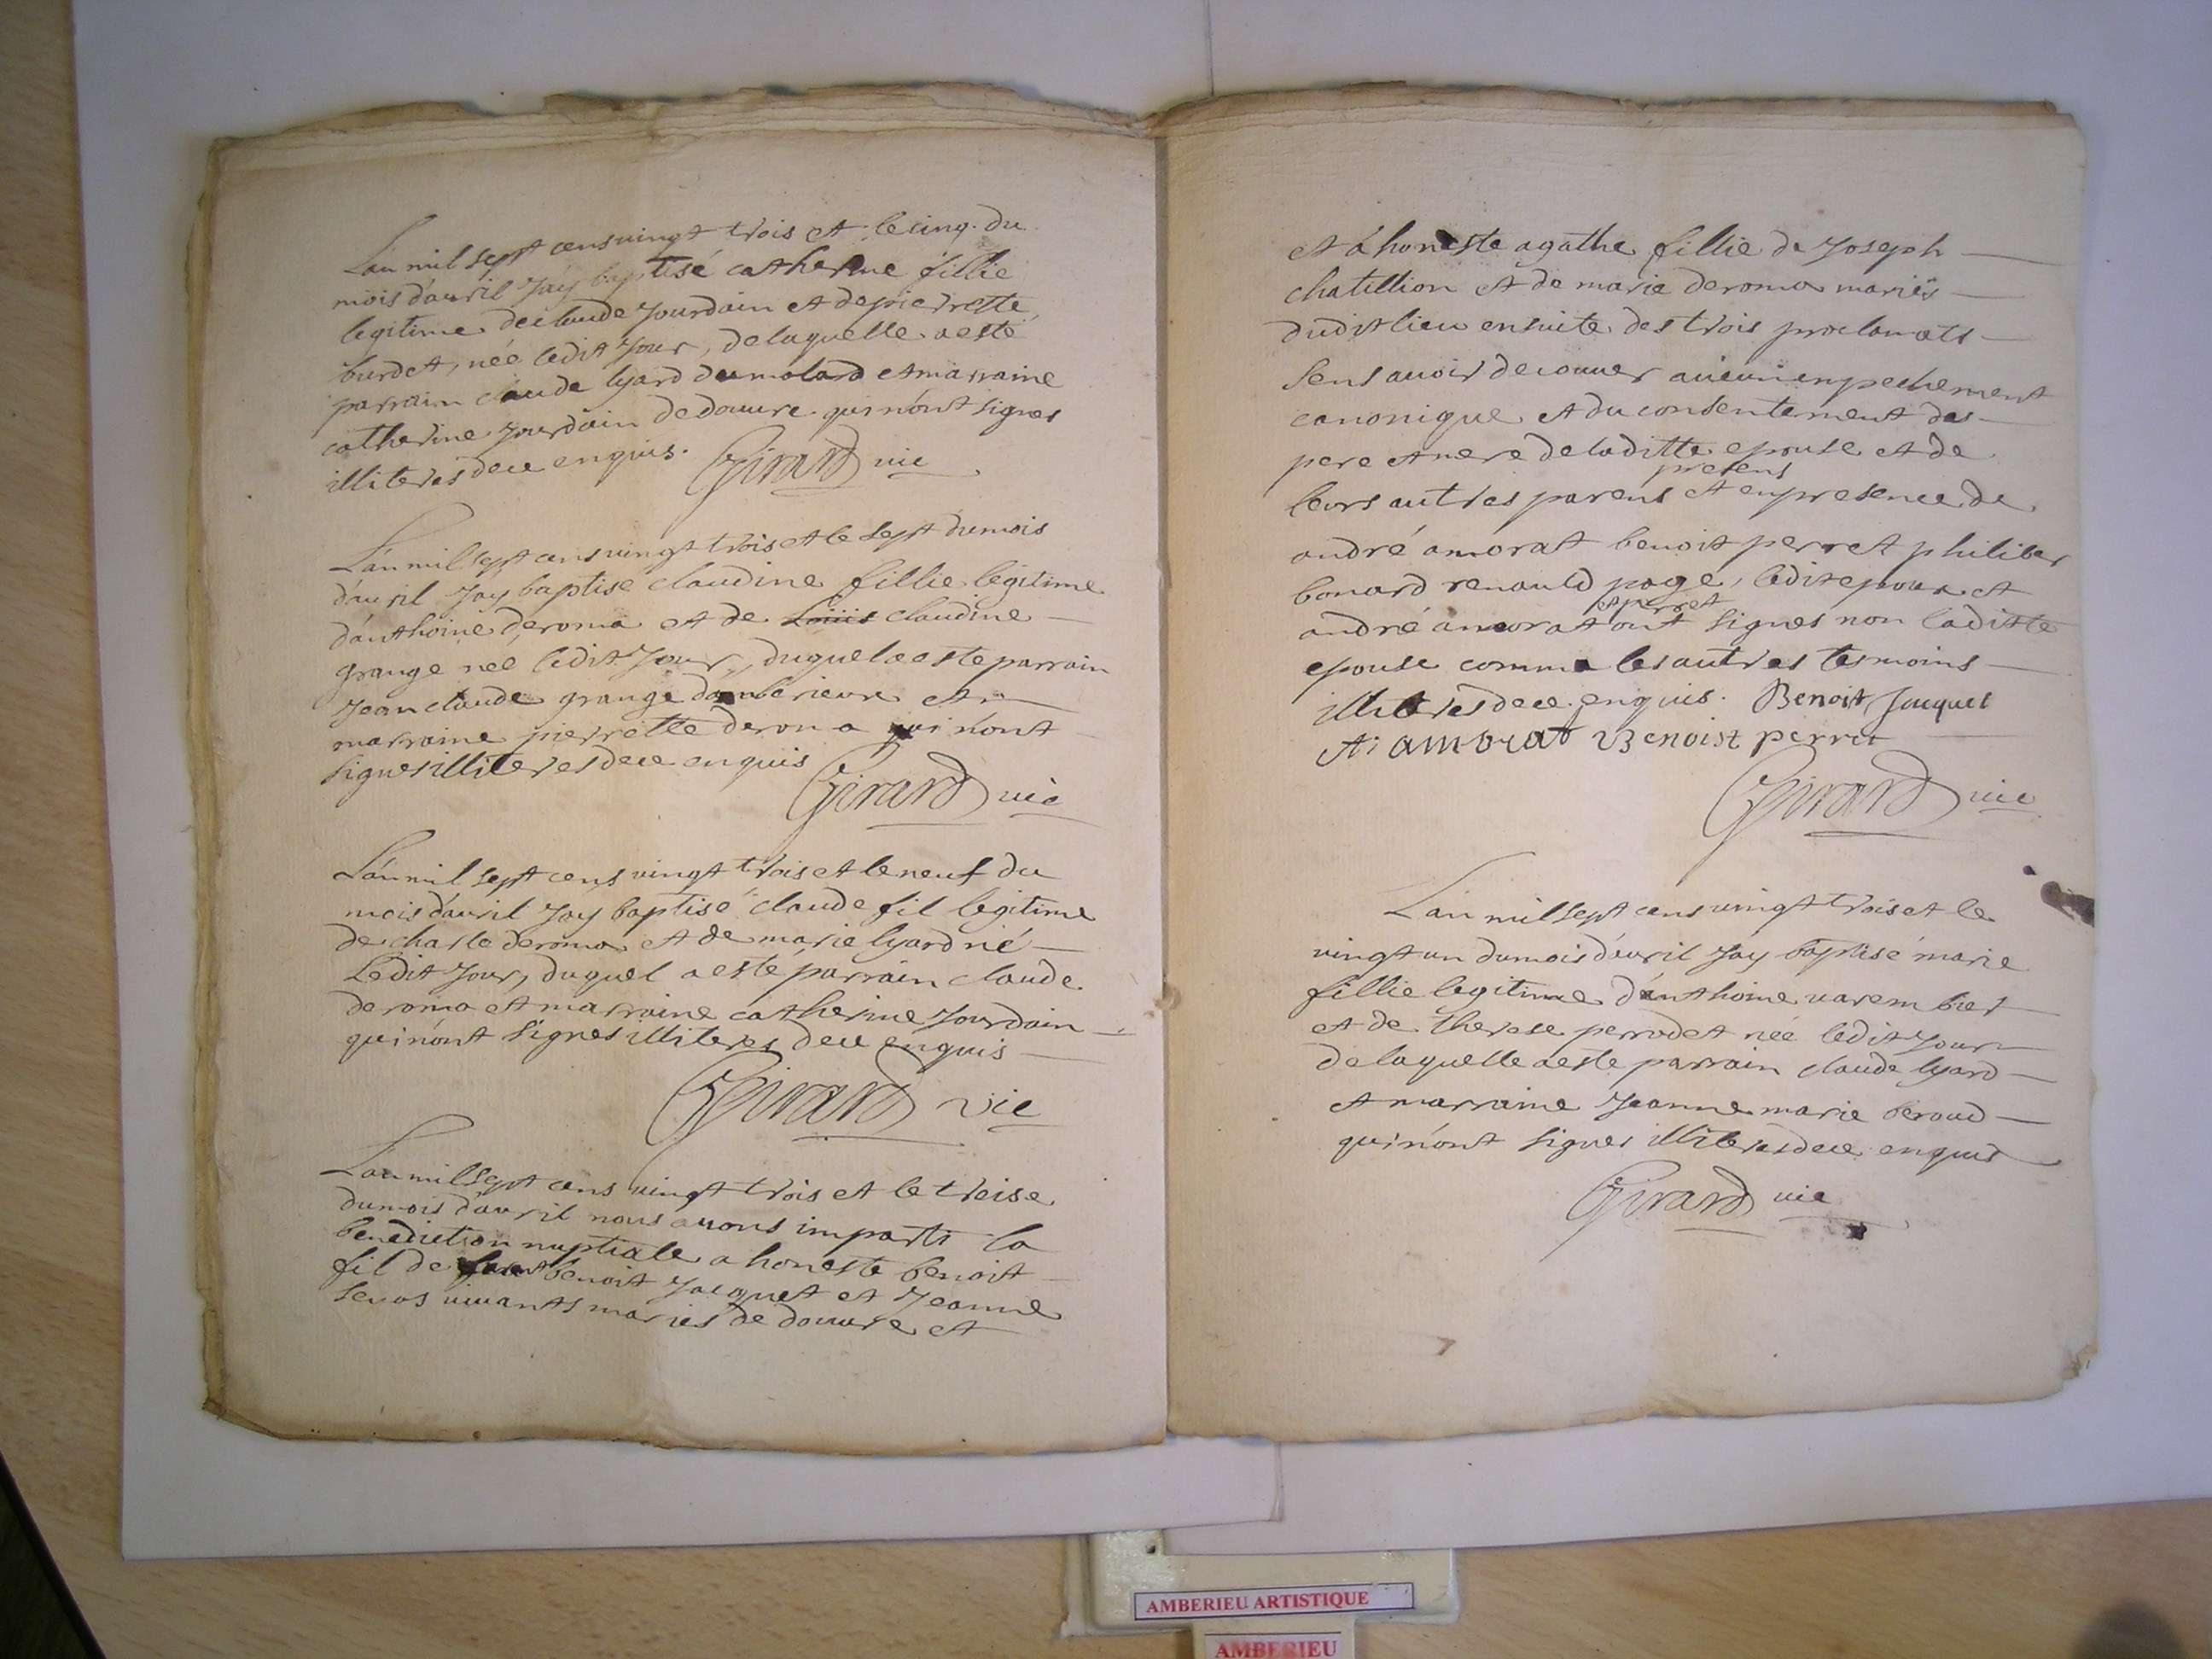 L'an mil sept cens vingt trois et le cinq du
mois d'avril Jay baptisé catherine fillie
legitime de claude Jourdain et de pierrette
burdet, née ledit Jour, de laquelle a esté
parrain claude lyard du molard et marraine
catherine Jourdain de douvre qui n'ont signes
illiteres de ce enquis. Girard vic
L'an mil sept cens vingt trois et le sept du mois
d'avril Jay baptise claudine fillie legitime
d'anthoine deroma et de claudine
grange née ledit Jour, duquel a este parrain
Jean claude grange d'amberieux et
marraine pierrette deroma qui n'ont
signes illiteres de ce enquis
Girard vic
L'an mil sept cens vingt trois et le neuf du
mois d'avril Jay baptisé claude fil legitime
de charle deroma et de marie lyard né
Ledit Jour, duquel a esté parrain claude
deroma et marraine catherine Jourdain
qui n'ont signes illiteres de ce enquis
Girard vic
L'an mil sept cens vingt trois et le treise
du mois d'avril nous avons imparti la
benediction nuptiale a honeste benoit
fil de benoit Jacquet et Jeanne
vivants maries de douvre et
et à honeste agathe fillie de Joseph
chatillion et de marie deroma mariés
dudit lieu ensuite des trois proclamats
sens avoir decouver aucun enpechement
canonique et du consentement des
pere et mere de laditte epouse et de
presens
leurs autres parens et en presence de
andré amorat benoit perret philiber
bonard renauld page, ledit epoux et
et perret
andré amorat ont signes non laditte
epouse comme les autres tesmoins
illiteres de ce enquis. Benoit Jacquet
A: amorat Benoist perret
Girard vic
L'an mil sept cens vingt trois et le
vingt un du mois d'avril Jay baptisé marie
fillie legitime d'anthoine varembiet
et de therese perrodet née ledit Jour
de laquelle a este parrain claude lyard
et marraine Jeanne marie beroud
qui n'ont signes illiteres de ce enquis
Girard vic
AMBERIEU ARTISTIQUE
AMBERIEU